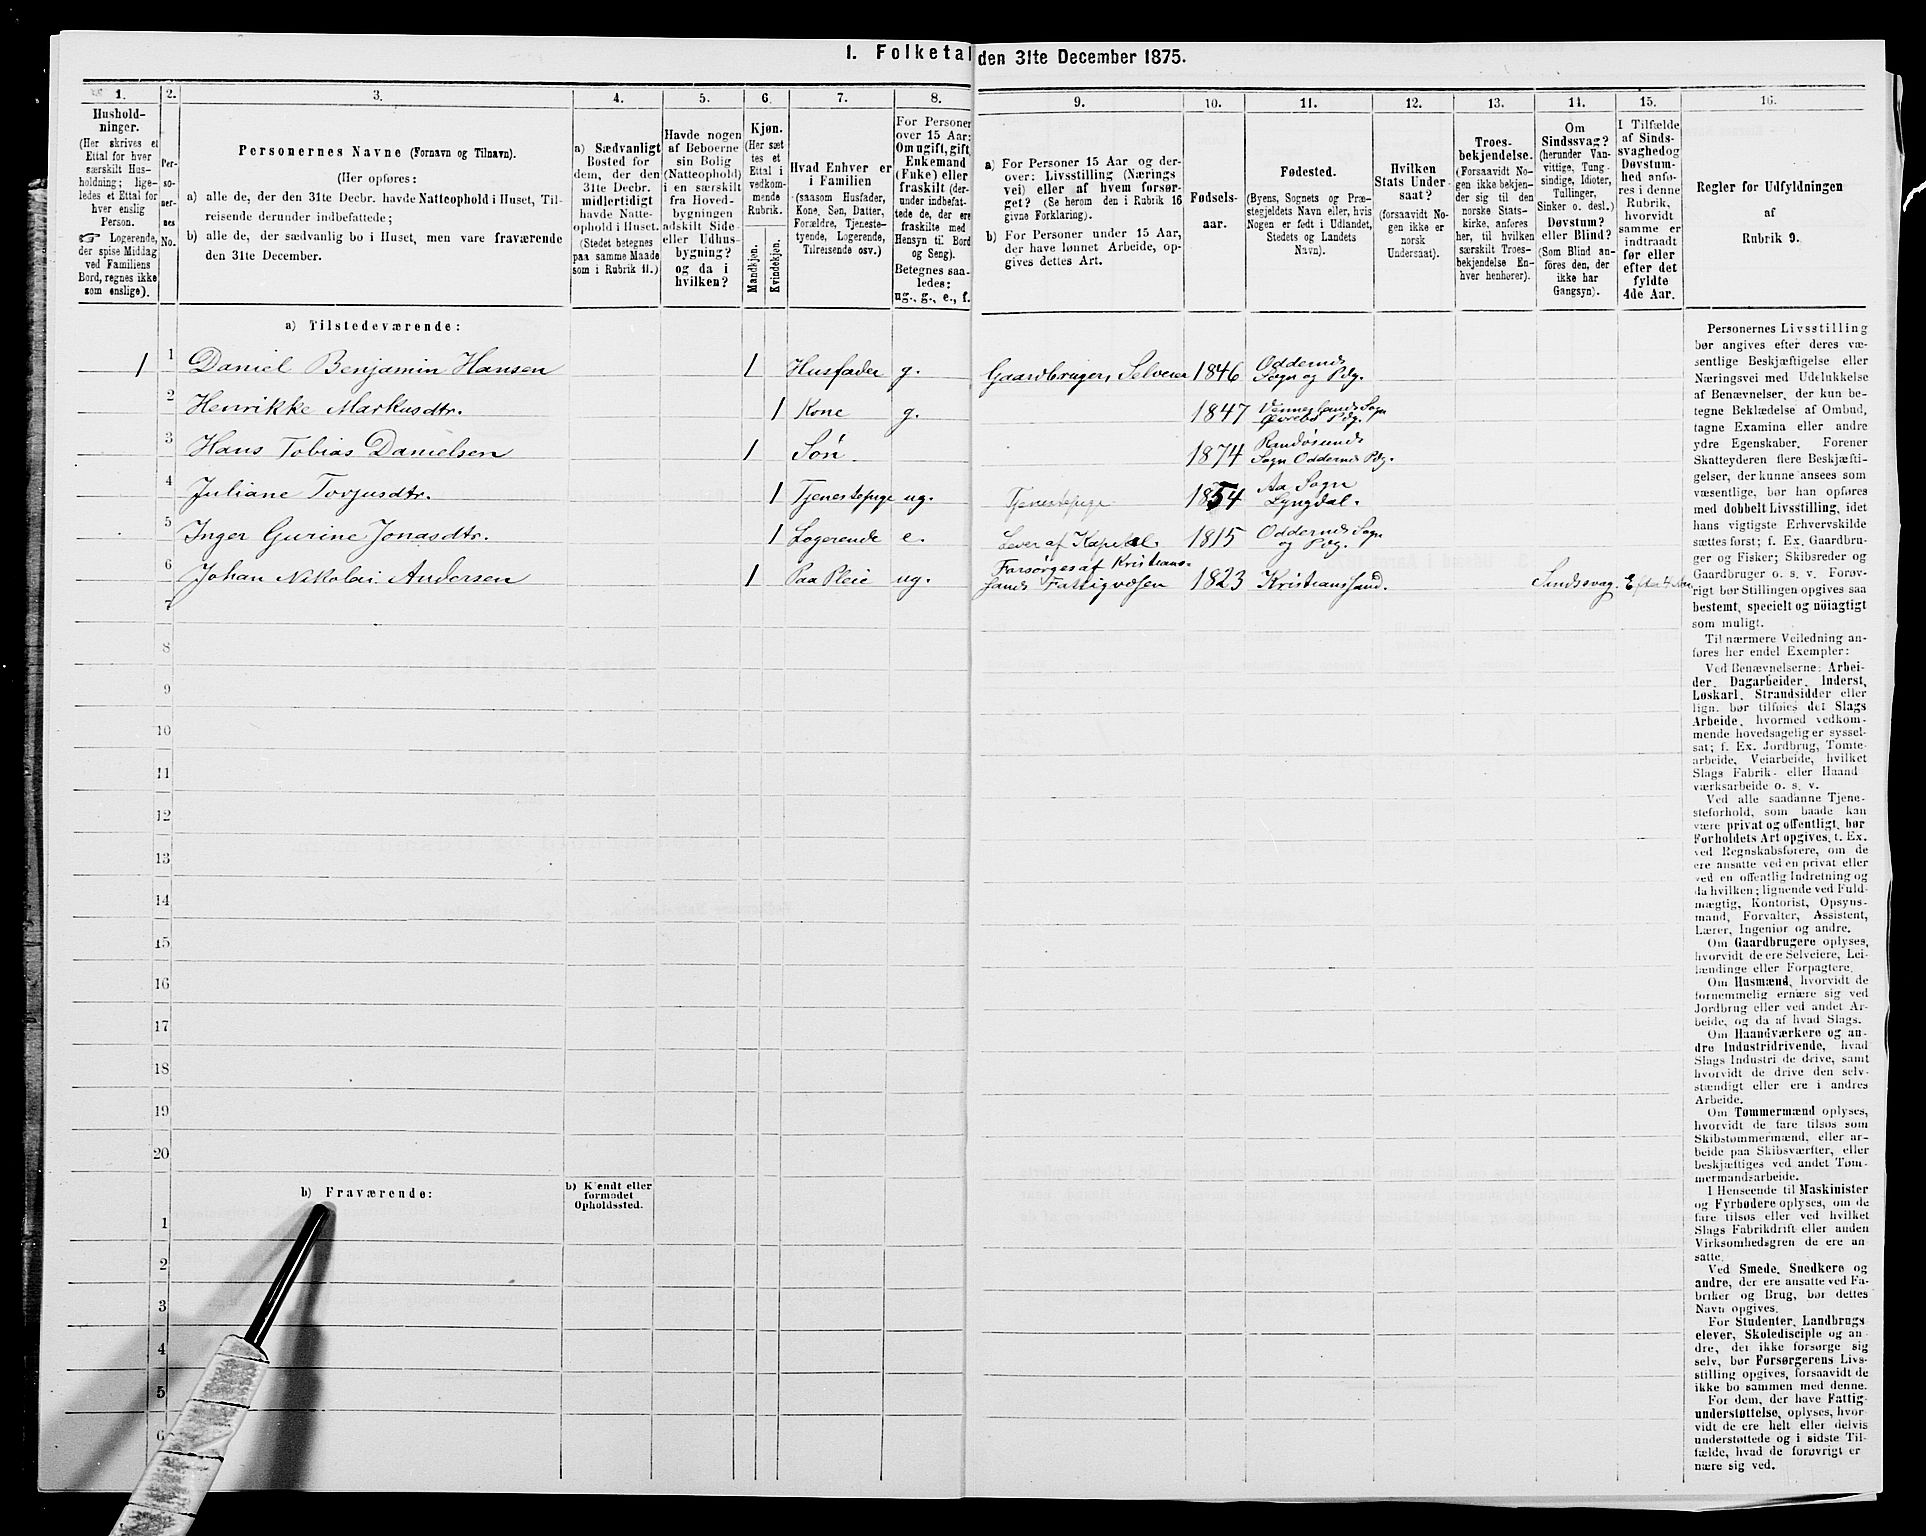 1. Folketal den 31te December 1875.
1.
2.
3.
4.
5.
6.
7.
8.
9.
10.
11.
12.
13.
14.
15.
16.
Hushold-
ninger.
(Her skrives et
Ettal for hver
særskilt Hus-
holdning; lige-
ledes et Ettal for
hver enslig
Person.
☞ Logerende,
der spise Middag
ved Familiens
Bord, regnes ikke
som enslige).
Per-
so-
ner-
nes
No.
Personernes Navne (Fornavn og Tilnavn).
(Her opføres:
a) alle de, der den 31te Decbr. havde Natteophold i Huset, Til-
reisende derunder indbefattede;
b) alle de, der sædvanlig bo i Huset, men vare fraværende
den 31te December.
a) Sædvanligt
Bosted for
dem, der den
31te Decbr.
midlertidigt
havde Natte-
ophold i Huset.
(Stedet betegnes
paa samme Maade
som i Rubrik 11.)
Havde nogen
af Beboerne
sin Bolig
(Natteophold)
i en særskilt
fra Hoved-
bygningen
adskilt Side-
eller Udhus-
bygning?
og da i
hvilken?
Kjøn.
(Her sæt
tes et
Ettal i
vedkom-
mende
Rubrik.
Mandkjøn.
Kvindekjøn.
Hvad Enhver er
i Familien
(saasom Husfader,
Kone, Søn, Datter,
Forældre, Tjeneste-
tyende, Logerende,
Tilreisende osv.)
For Personer
over 15 Aar:
Om ugift, gift,
Enkemand
(Enke) eller
fraskilt (der-
under indbefat-
tede de, der ere
fraskilte med
Hensyn til Bord
og Seng).
Betegnes saa-
ledes:
ug., g., e., f.
a) For Personer 15 Aar og der-
over: Livsstilling (Nærings
vei) eller af hvem forsør-
get? (Se herom den i Rubrik 16
givne Forklaring).
b) For Personer under 15 Aar,
der have lønnet Arbeide, op-
gives dettes Art.
Fødsels-
aar.
Fødested.
(Byens, Sognets og Præ-
stegjeldets Navn eller, hvis
Nogen er født i Udlandet,
Stedets og Landets
Navn).
Hvilken
Stats Under-
saat?
(forsaavidt No-
gen ikke er
norsk
Undersaat).
Troes-
bekjendelse.
(Forsaavidt No-
gen ikke bekjen-
der sig til den
norske Stats-
kirke, anføres
her, til hvilken
særskilt Troes-
bekjendelse En-
hver henhører).
Om
Sindssvag?
(herunder Van-
vittige, Tung-
sindige, Idioter,
Tullinger,
Sinker o. desl.)
Døvstum?
eller Blind?
(Som Blind an-
føres den, der
ikke har
Gangsyn).
I Tilfælde
af Sinds-
svaghed og
Døvstum-
hed anfø-
res i denne
Rubrik,
hvorvidt
samme er
indtraadt
før eller
efter det
fyldte
4de Aar.
Regler for Udfyldningen
af
Rubrik 9.
a) Tilstedeværende:
1 1 Daniel Benjamin Hansen 1 Husfader g. Gaardbruger, Selveier 1846 Oddernes
Sogn og Pdg.
2 Henrikke Markusdtr. 1 Kone g. 1847 Venneslands Sogn
Øvrebø Pdg.
3 Hans Tobias Danielsen 1 Søn 1874 Randøsunds
Sogn Oddernes Pdg.
4 Juliane Torjusdtr. 1 Tjenestepige ug. Tjenestepige 1854 Aa Sogn
Lyngdal.
5 Inger Gurine Jonasdtr. 1 Logerende e. Lever af Kapital. 1815 Oddernes Sogn
og Pdg.
6 Johan Nikolai Andersen 1 Paa Pleie ug. Forsørges af Kristians-
sands Fattigvæsen 1823 Kristianssand. Sindssvag. Efter 4 Aar.
7
8
9
10
11
12
13
14
15
16
17
18
19
20
b) Fraværende:
b) Kjendt eller
formodet
Opholdssted.
1
2
3
4
5
6
Personernes Livsstilling
bør angives efter deres væ-
sentlige Beskjæftigelse eller
Næringsvei med Udelukkelse
af Benævnelser, der kun be-
tegne Beklædelse af Ombud,
tagne Examina eller andre
ydre Egenskaber. Forener
Skatteyderen flere Beskjæfti-
gelser, der kunne ansees som
væsentlige, bør han opføres
med dobbelt Livsstilling, idet
hans vigtigste Erhvervskilde
sættes først; f. Ex. Gaardbru-
ger og Fisker; Skibsreder og
Gaardbruger o. s. v. Forøv-
rigt bør Stillingen opgives saa
bestemt, specielt og nöiagtigt
som muligt.
Til nærmere Veiledning an-
føres her endel Exempler:
Ved Benævnelserne: Arbei-
der, Dagarbeider, Inderst,
Løskarl, Strandsidder eller
lign. bør tilføies det Slags
Arbeide, hvormed vedkom-
mende hovedsagelig er syssel-
sat; f. Ex. Jordbrug, Tomte-
arbeide, Veiarbeide, hvilket
Slags Fabrik- eller Haand
værksarbeide o. s. v.
Ved alle saadanne Tjene-
steforhold, som baade kan
være privat og offentligt, bør
Forholdets Art opgives, t. Ex.
ved Regnskabsførere, om de
ere ansatte ved en privat eller
ved en offentlig Indretning og
da hvilken; lignende ved Fuld-
mægtig, Kontorist, Opsyns-
mand, Forvalter, Assistent,
Lærer, Ingeniør og andre.
Om Gaardbrugere oplyses,
hvorvidt de ere Selveiere, Lei-
lændinge eller Forpagtere.
Om Husmænd, hvorvidt de
fornemmelig ernære sig ved
Jordbrug eller ved andet Ar-
beide, og da af hvad Slags.
Om Haandværkere og an-
dre Industridrivende, hvad
Slags Industri de drive, samt
hvorvidt de drive den selv-
stændigt eller ere i andres
Arbeide.
Om Tømmermænd oplyses,
hvorvidt de fare tilsøs som
Skibstømmermænd, eller ar-
beide paa Skibsværfter, eller
beskjæftiges ved andet Tøm-
mermandsarbeide.
I Henseende til Maskinister
og Fyrbødere oplyses, om de
fare tilsøs eller ved hvilket
Slags Fabrikdrift eller anden
Virksomhedsgren de ere an-
satte.
Ved Smede, Snedkere og
andre, der ere ansatte ved Fa-
briker og Brug, bør dettes
Navn opgives.
For Studenter, Landbrugs
elever, Skoledisciple og an-
dre, der ikke forsørge sig
selv, bør Forsørgerens Livs-
stilling opgives, forsaavidt de
ikke bo sammen med denne.
For dem, der have Fattig-
understøttelse, oplyses, hvor-
vidt de ere helt eller delvis
understøttede og i sidste Til-
fælde, hvad de forøvrigt er
nære sig ved.